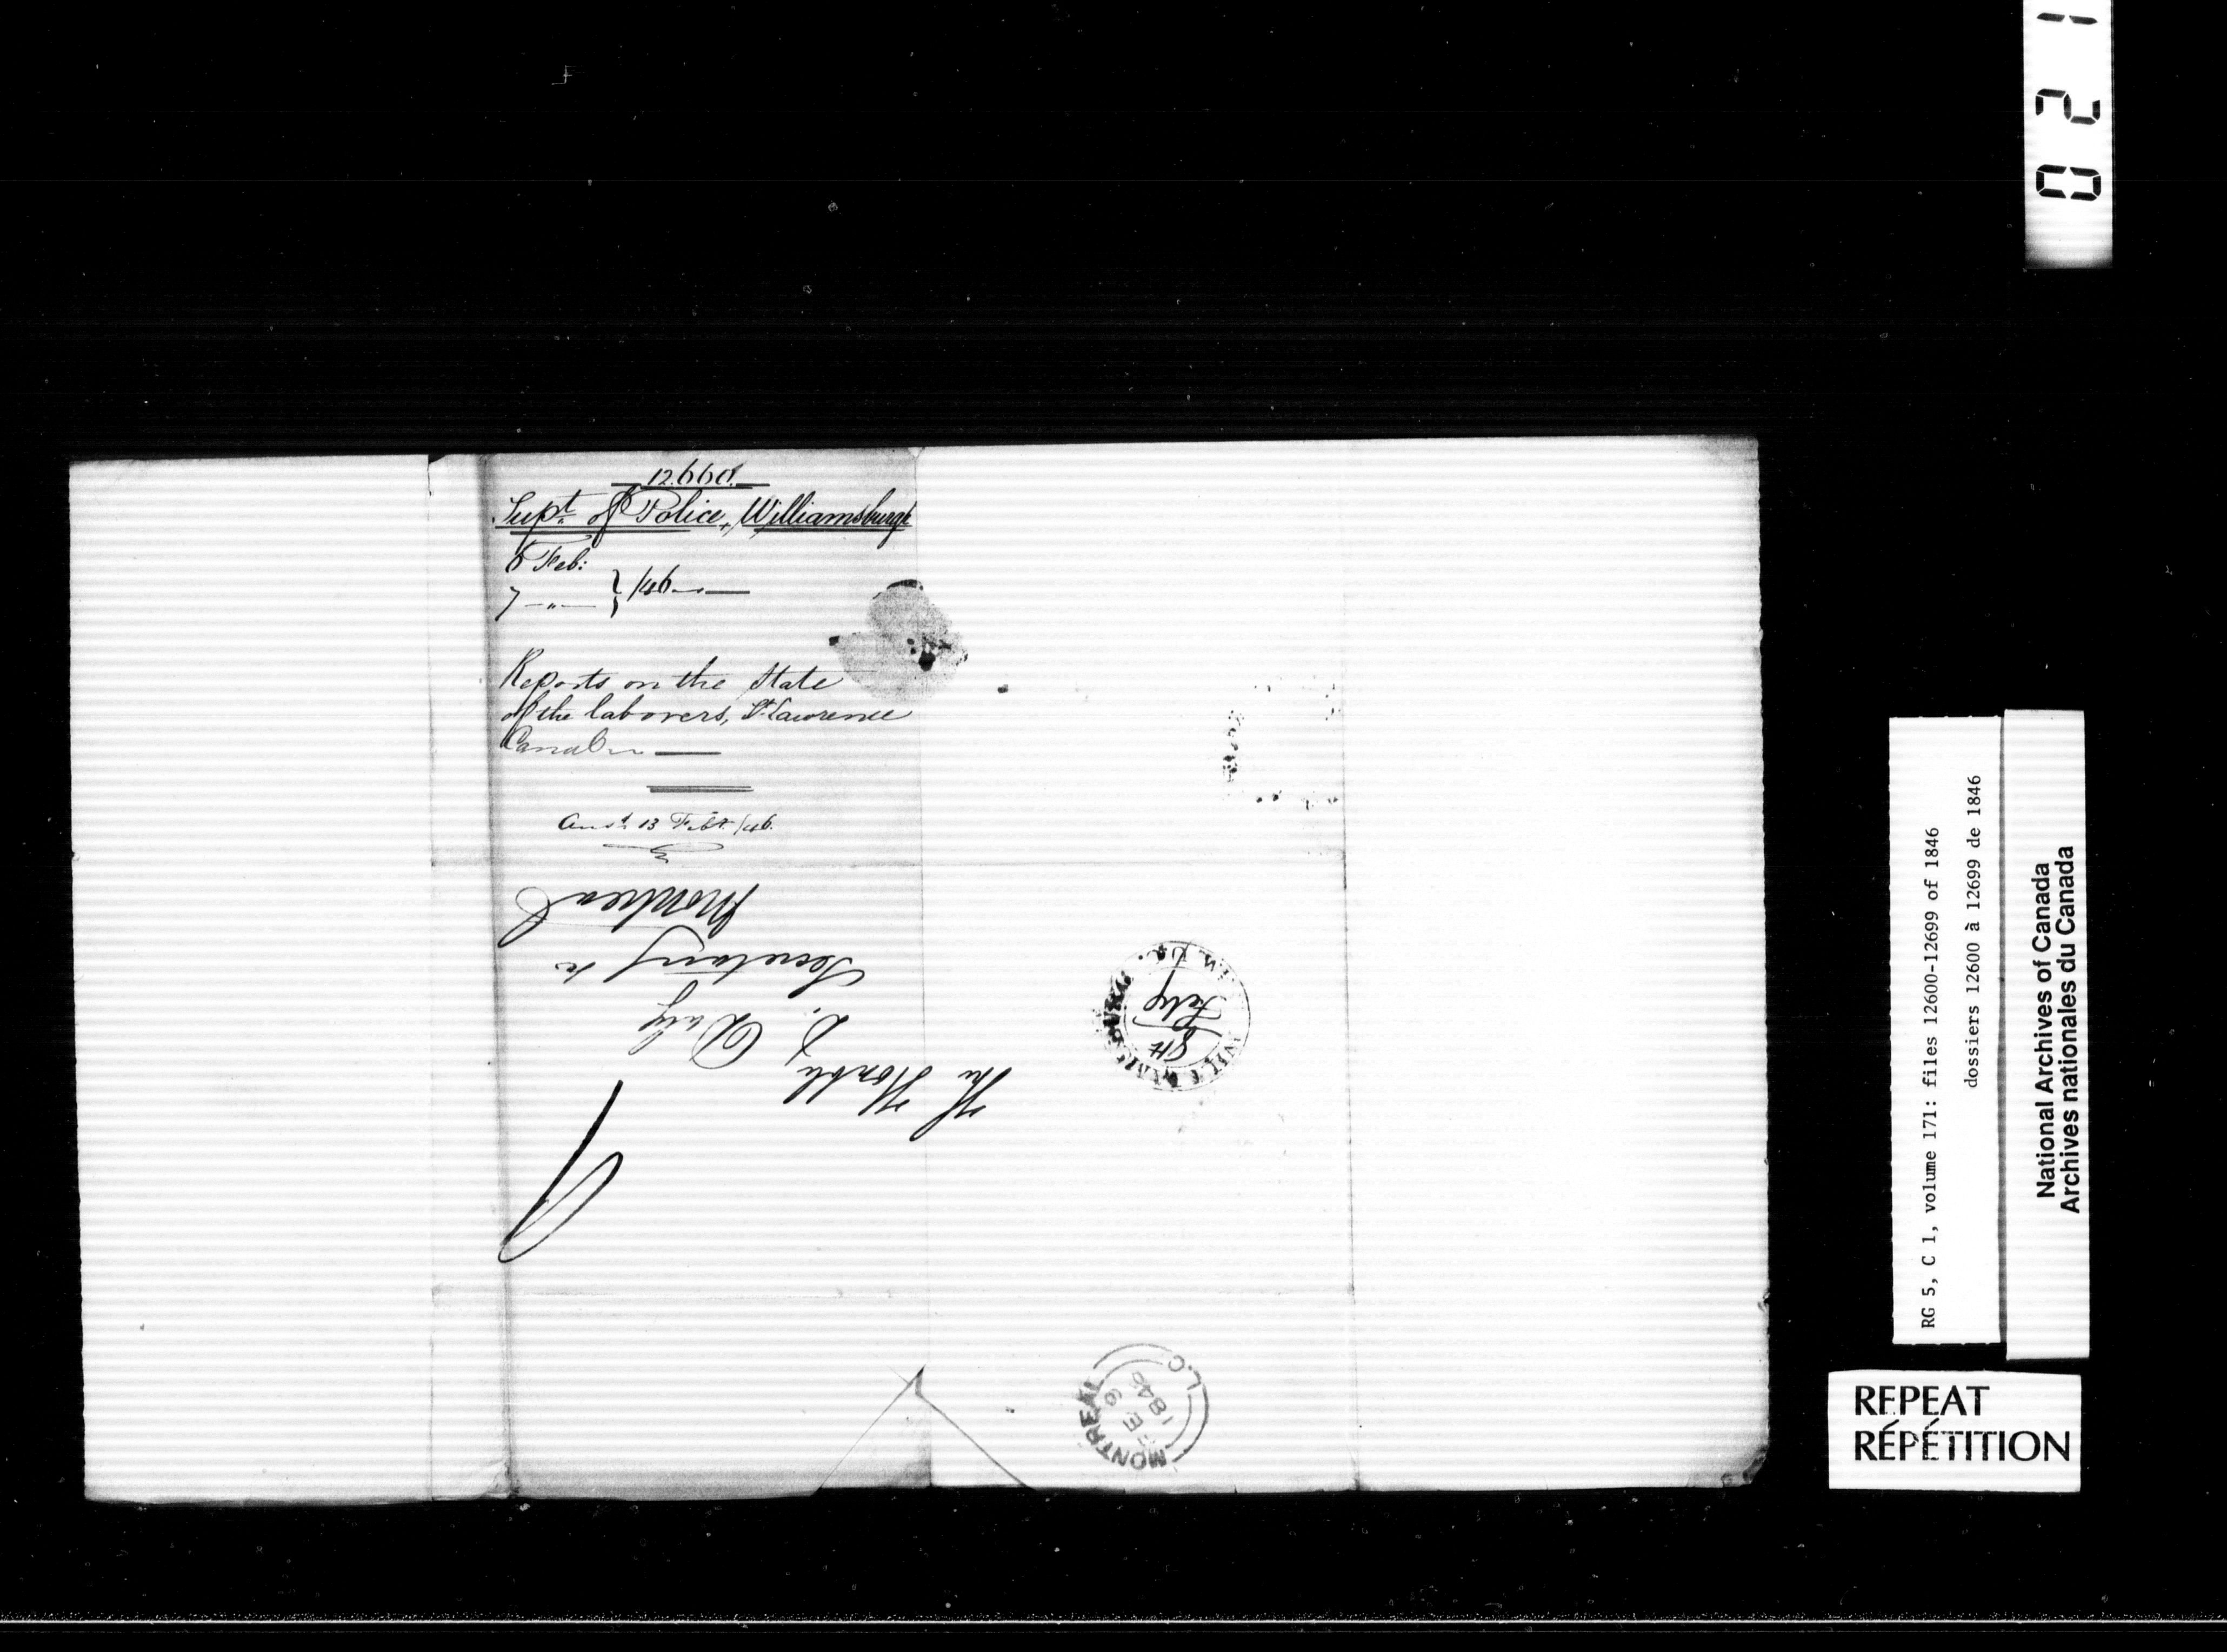 12.660.
Supt. of Police, Williamsburgh
6 Feb:
7 —"— } /46
Reports on the State
of the laborers, St. Lawrence
Canal
Ansd 13 Feby. /46.
The Honble
D. Daly
Secretary &c
Montreal
WILLIAMSBURG
8th
Feby
MONTREAL
FE 9
1846
L.C
021
RG 5, C 1, volume 171: files 12600-12699 of 1846
dossiers 12600 à 12699 de 1846
National Archives of Canada
Archives nationales du Canada
REPEAT
RÉPÉTITION